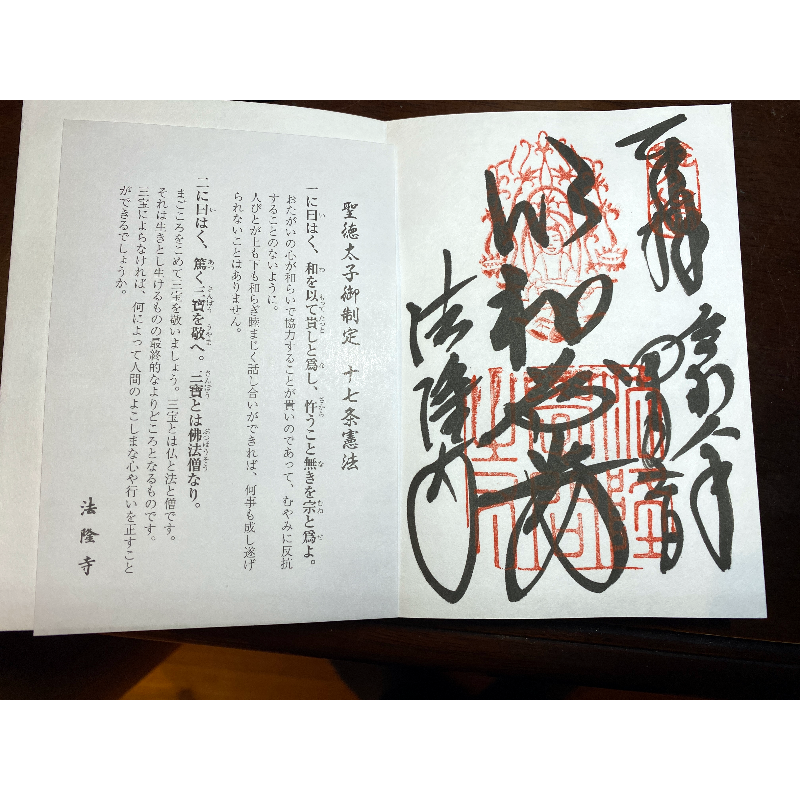 奉拝
以和為貴
法隆寺
聖徳太子御制定 十七条憲法
一に曰はく、和を以て貴しと爲し、忤うこと無きを宗と爲よ。
おたがいの心が和らいで協力することが貴いのであって、むやみに反抗
することのないように。
人びとが上も下も和らぎ睦まじく話し合いができれば、何事も成し遂げ
られないことはありません。
二に曰はく、篤く三寶を敬へ。三寶とは佛法僧なり。
まごころをこめて三宝を敬いましょう。三宝とは仏と法と僧です。
それは生きとし生けるものの最終的なよりどころとなるものです。
三宝によらなければ、何によって人間のよこしまな心や行いを正すこと
ができるでしょうか。
法隆寺